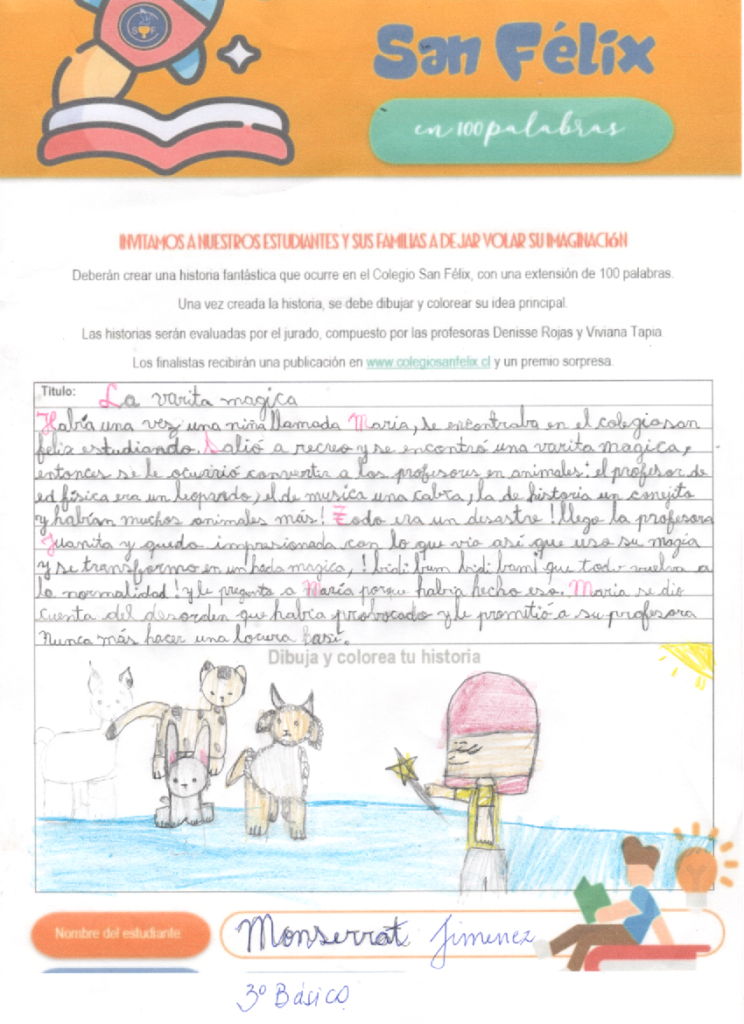 San Félix
en 100 palabras
INVITAMOS A NUESTROS ESTUDIANTES Y SUS FAMILIAS A DEJAR VOLAR SU IMAGINACIÓN
Deberán crear una historia fantástica que ocurre en el Colegio San Félix, con una extensión de 100 palabras.
Una vez creada la historia, se debe dibujar y colorear su idea principal.
Las historias serán evaluadas por el jurado, compuesto por las profesoras Denisse Rojas y Viviana Tapia
Los finalistas recibirán una publicación en www.colegiosanfelix.cl y un premio sorpresa.
Titulo: La varita magica
Había una vez una niña llamada Maria, se encontraba en el colegio san
felix estudiando. Salió a recreo y se encontró una varita magica,
entonces se le ocurrió convertir a los profesores en animales: el profesor de
ed física era un leopardo, el de musica una cabra, la de historia un conejito
y habían muchos animales más! Todo era un desastre! llego la profesora
Juanita y quedo impresionada con lo que vio así que uso su magia
y se transformo en un hada magica, ! bidi bum bidi bum! que todo vuelva a
la normalidad! y le pregunto a María porque habia hecho eso. Maria se dio
cuenta del desorden que había probocado y le prometió a su profesora
Nunca más hacer una locura así.
Dibuja y colorea tu historia
Nombre del estudiante
Monserrat Jimenez
3º Básico